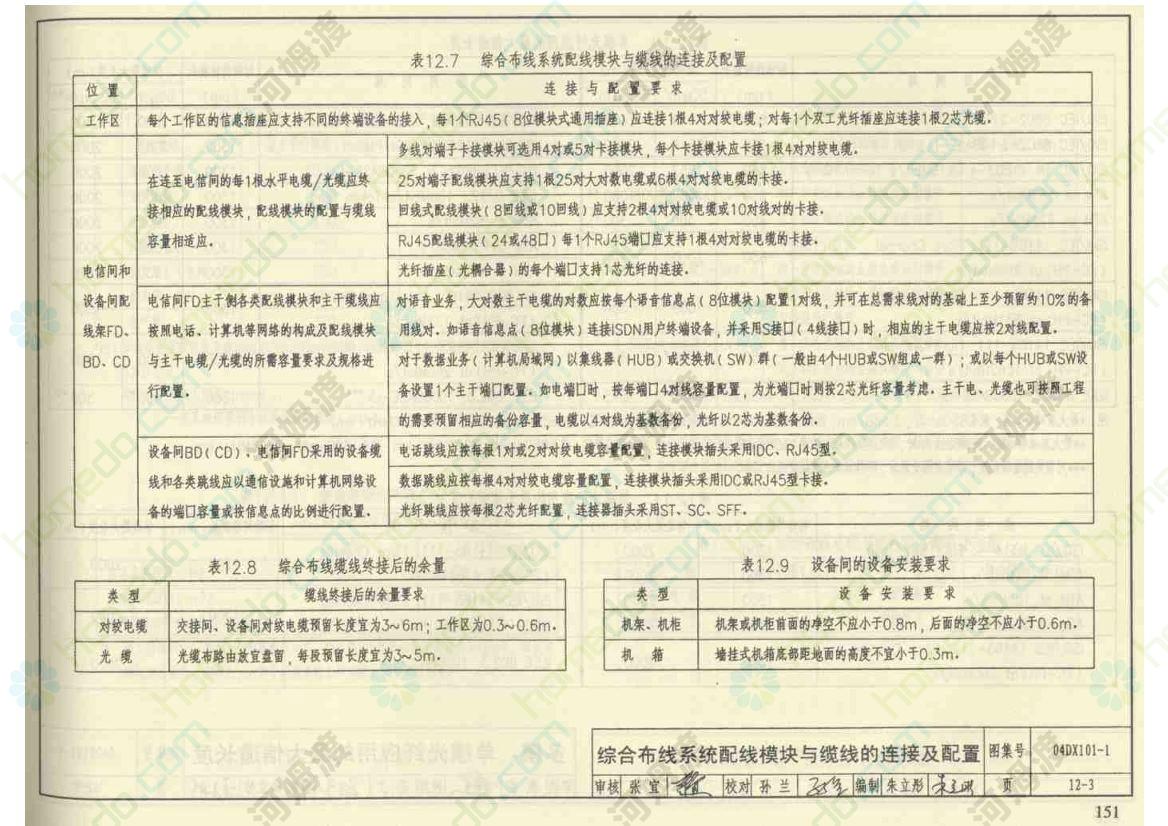 表12.7 综合布线系统配线模块与缆线的连接及配置
位 置
连 接 与 配 置 要 求
工作区
每个工作区的信息插座应支持不同的终端设备的接入，每1个RJ45（8位模块式通用插座）应连接1根4对对绞电缆；对每1个双工光纤插座应连接1根2芯光缆。
电信间和
设备间配
线架FD、
BD、CD
在连至电信间的每1根水平电缆/光缆应终
接相应的配线模块，配线模块的配置与缆线
容量相适应。
多线对端子卡接模块可选用4对或5对卡接模块，每个卡接模块应卡接1根4对对绞电缆。
25对端子配线模块应支持1根25对大对数电缆或6根4对对绞电缆的卡接。
回线式配线模块（8回线或10回线）应支持2根4对对绞电缆或10对线对的卡接。
RJ45配线模块（24或48口）每1个RJ45端口应支持1根4对对绞电缆的卡接。
光纤插座（光耦合器）的每个端口支持1芯光纤的连接。
电信间FD主干侧各类配线模块和主干缆线应
按照电话、计算机等网络的构成及配线模块
与主干电缆/光缆的所需容量要求及规格进
行配置。
对语音业务，大对数主干电缆的对数应按每个语音信息点（8位模块）配置1对线，并可在总需求线对的基础上至少预留约10%的备
用线对。如语音信息点（8位模块）连接ISDN用户终端设备，并采用S接口（4线接口）时，相应的主干电缆应按2对线配置。
对于数据业务（计算机局域网）以集线器（HUB）或交换机（SW）群（一般由4个HUB或SW组成一群）；或以每个HUB或SW设
备设置1个主干端口配置。如电端口时，按每端口4对线容量配置，为光端口时则按2芯光纤容量考虑。主干电、光缆也可按照工程
的需要预留相应的备份容量，电缆以4对线为基数备份，光纤以2芯为基数备份。
设备间BD（CD）、电信间FD采用的设备缆
线和各类跳线应以通信设施和计算机网络设
备的端口容量或按信息点的比例进行配置。
电话跳线应按每根1对或2对对绞电缆容量配置，连接模块插头采用IDC、RJ45型。
数据跳线应按每根4对对绞电缆容量配置，连接模块插头采用IDC或RJ45型卡接。
光纤跳线应按每根2芯光纤配置，连接器插头采用ST、SC、SFF。
表12.8 综合布线缆线终接后的余量
类 型
缆线终接后的余量要求
对绞电缆
交接间、设备间对绞电缆预留长度宜为3~6m；工作区为0.3~0.6m。
光 缆
光缆布路由放宜盘留，每段预留长度宜为3~5m。
表12.9 设备间的设备安装要求
类 型
设 备 安 装 要 求
机架、机柜
机架或机柜前面的净空不应小于0.8m，后面的净空不应小于0.6m。
机 箱
墙挂式机箱底部距地面的高度不宜小于0.3m。
综合布线系统配线模块与缆线的连接及配置
图集号
04DX101-1
审核 张宜 校对 孙兰 编制 朱立彤
页
12-3
151
河姆渡
homedo.com